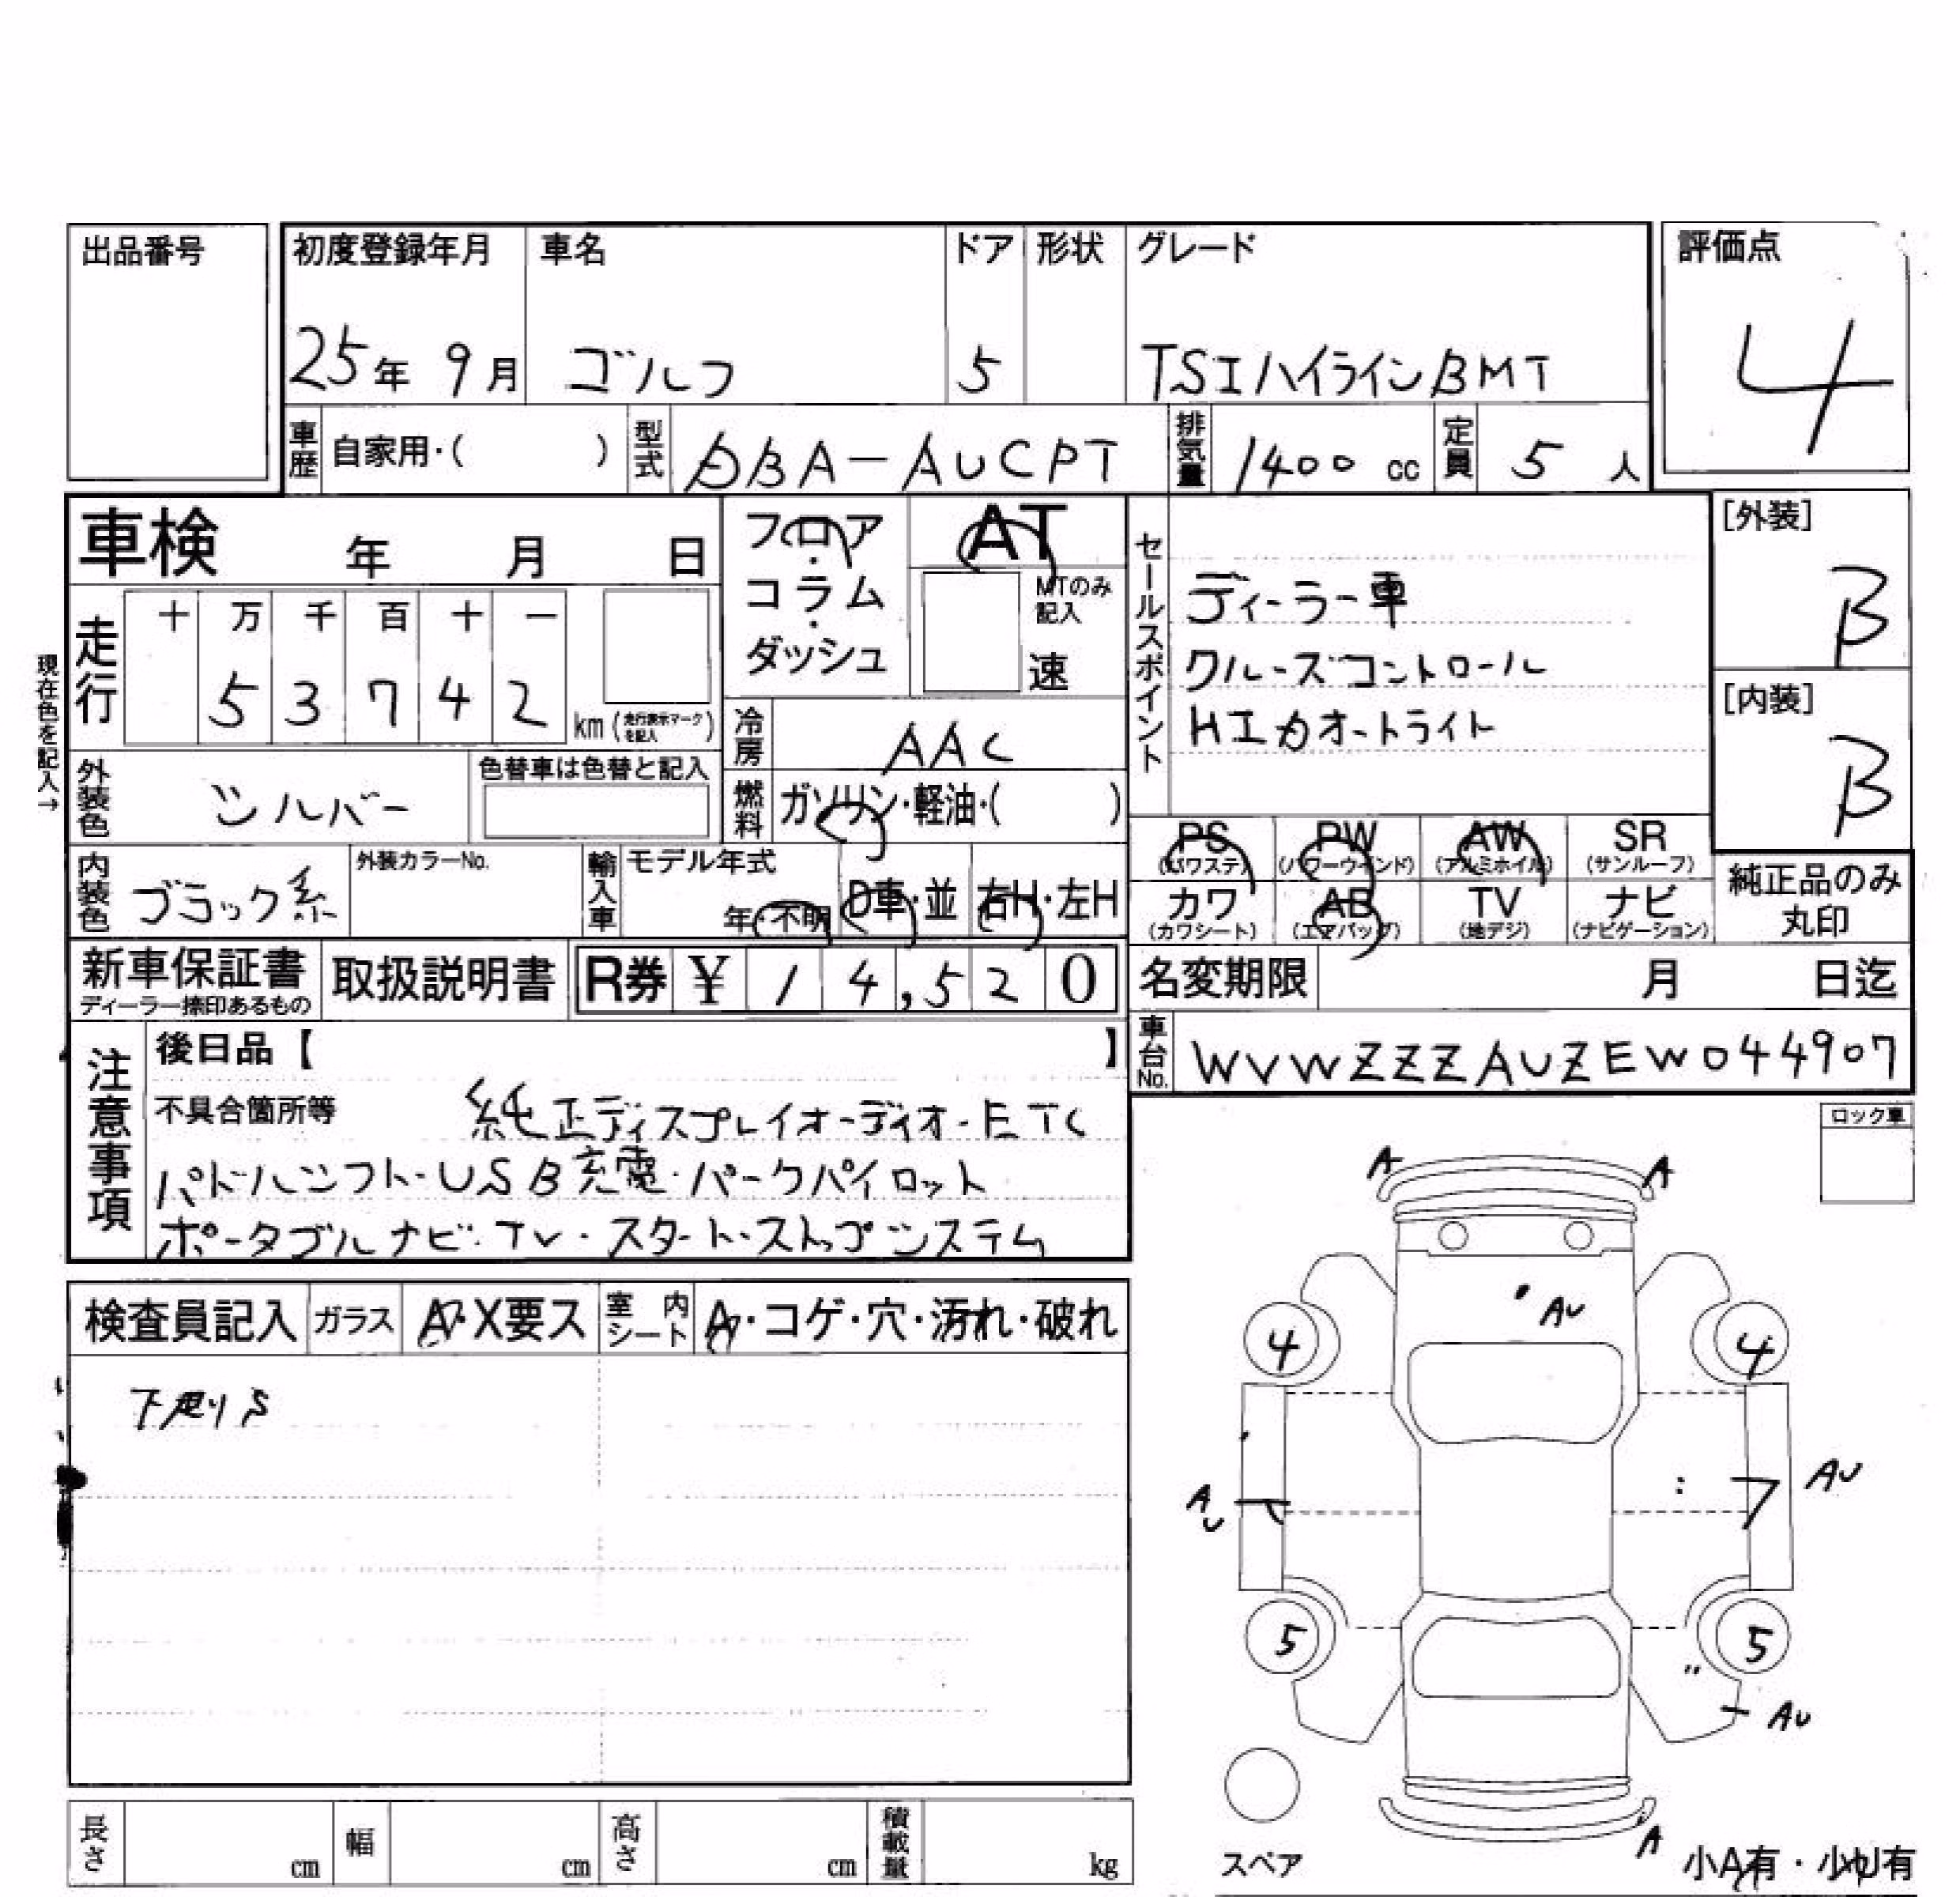 出品番号
初度登録年月 車名 ドア 形状 グレード 評価点
25年 9月 ゴルフ 5 TSIハイラインBMT 4
車歴 自家用・( ) 型式 DBA-AUCPT 排気量 1400 cc 定員 5 人
車検 年 月 日
フロア・コラム・ダッシュ
AT
MTのみ記入
速
セールスポイント
ディーラー車
クルーズコントロール
HIDオートライト
[外装]
B
[内装]
B
現在色を記入→
走行 十 万 千 百 十 一
5 3 7 4 2 km (走行表示マークを記入)
冷房 AAC
外装色 シルバー 色替車は色替と記入
燃料 ガソリン・軽油・( )
内装色 ブラック系 外装カラーNo.
輸入車 モデル年式 年・不明 D車・並 右H・左H
PS (パワステ) PW (パワーウインド) AW (アルミホイル) SR (サンルーフ)
カワ (カワシート) AB (エアバッグ) TV (地デジ) ナビ (ナビゲーション)
純正品のみ丸印
新車保証書 ディーラー捺印あるもの 取扱説明書 R券 ¥ 1 4,5 2 0
名変期限 月 日迄
車台No. WVWZZZAUZEW044907
注意事項
後日品【 】
不具合箇所等 純正ディスプレイオーディオ・ETC
パドルシフト・USB充電・パークパイロット
ポータブルナビ・TV・スタートストップシステム
ロック車
検査員記入 ガラス A・X要ス 室内シート A・コゲ・穴・汚れ・破れ
下廻りS
A A
AU
4 4
AU AU
5 5
AU
A
スペア
小A有・小U有
長さ cm 幅 cm 高さ cm 積載量 kg